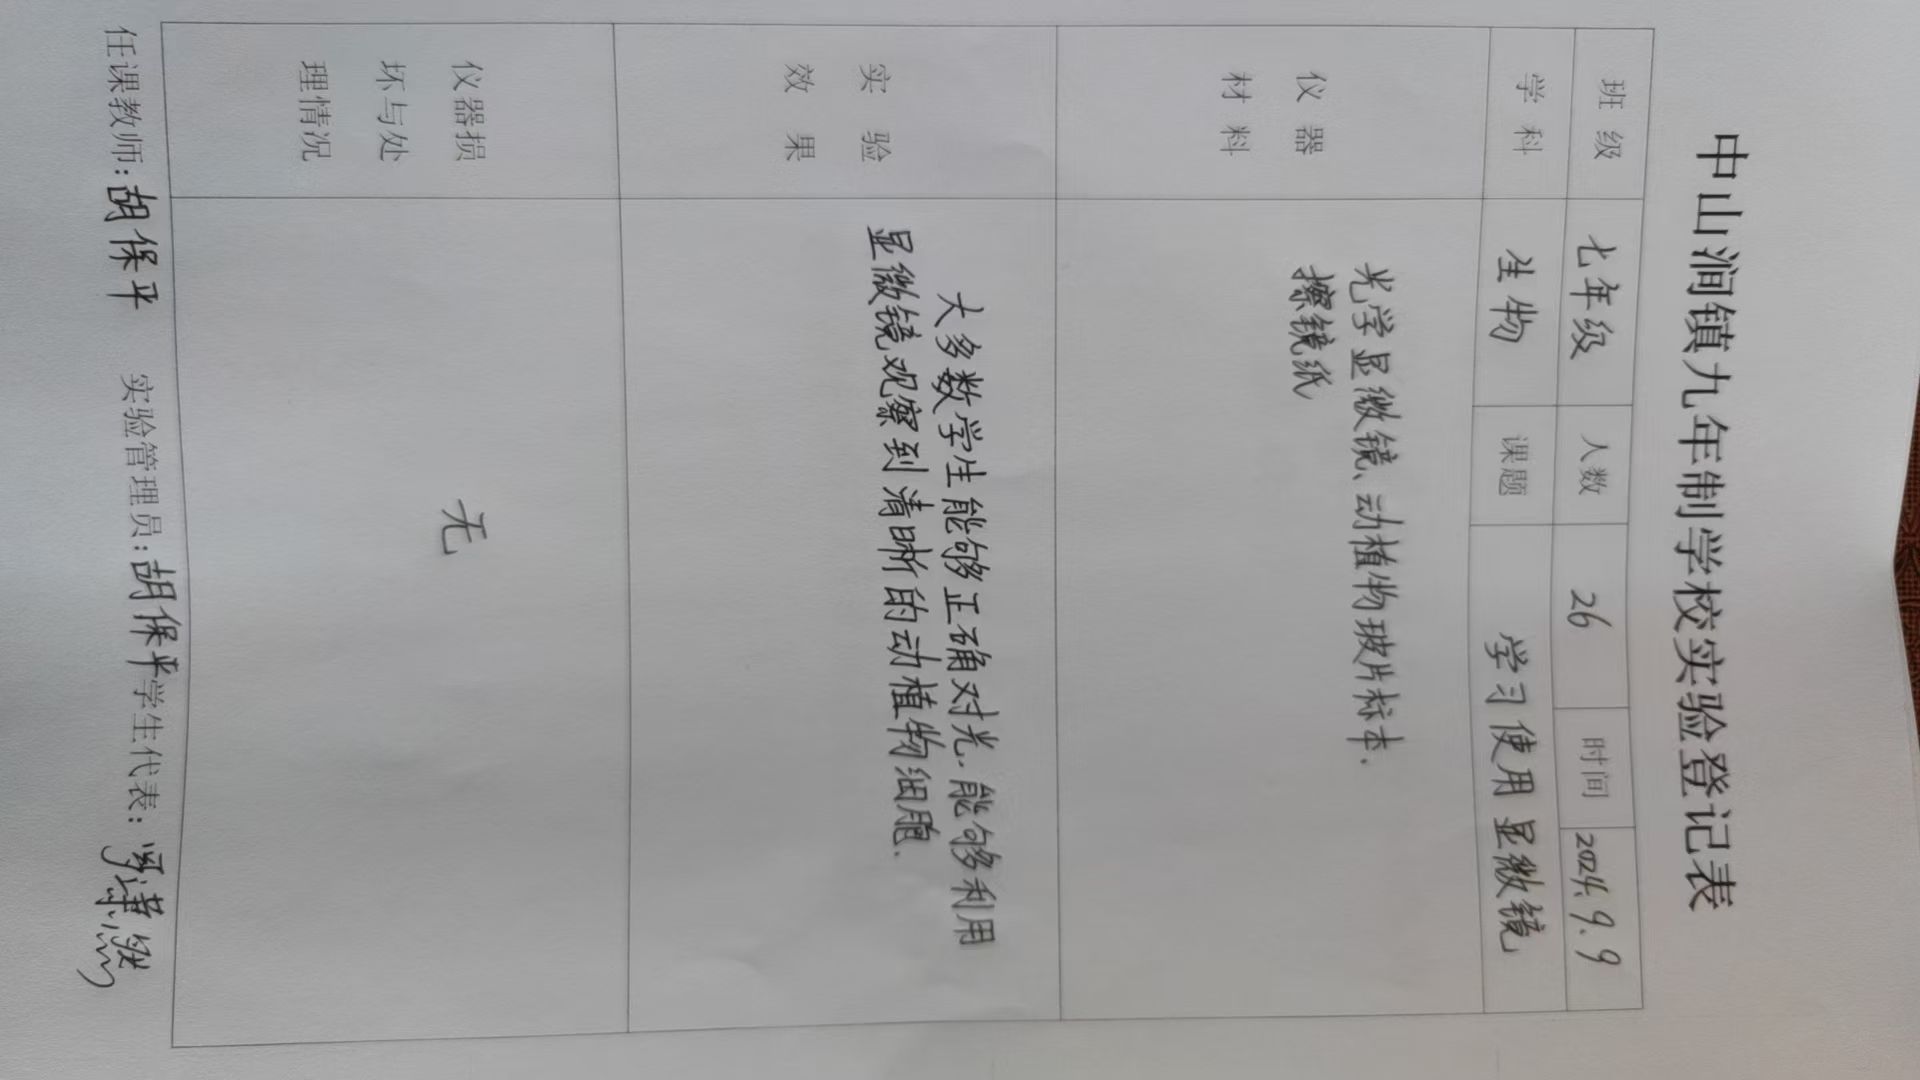 中山涧镇九年制学校实验登记表
班级 七年级 人数 26 时间 2024.9.9
学科 生物 课题 学习使用显微镜
仪器
材料
光学显微镜、动植物玻片标本、
擦镜纸
实验
效果
大多数学生能够正确对光.能够利用
显微镜观察到清晰的动植物细胞.
仪器损
坏与处
理情况
无
任课教师:胡保平 实验管理员:胡保平 学生代表: